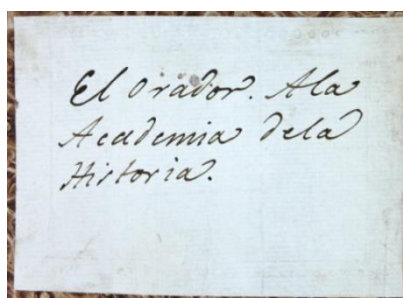 El Orador. Ala
Academia dela
Historia.